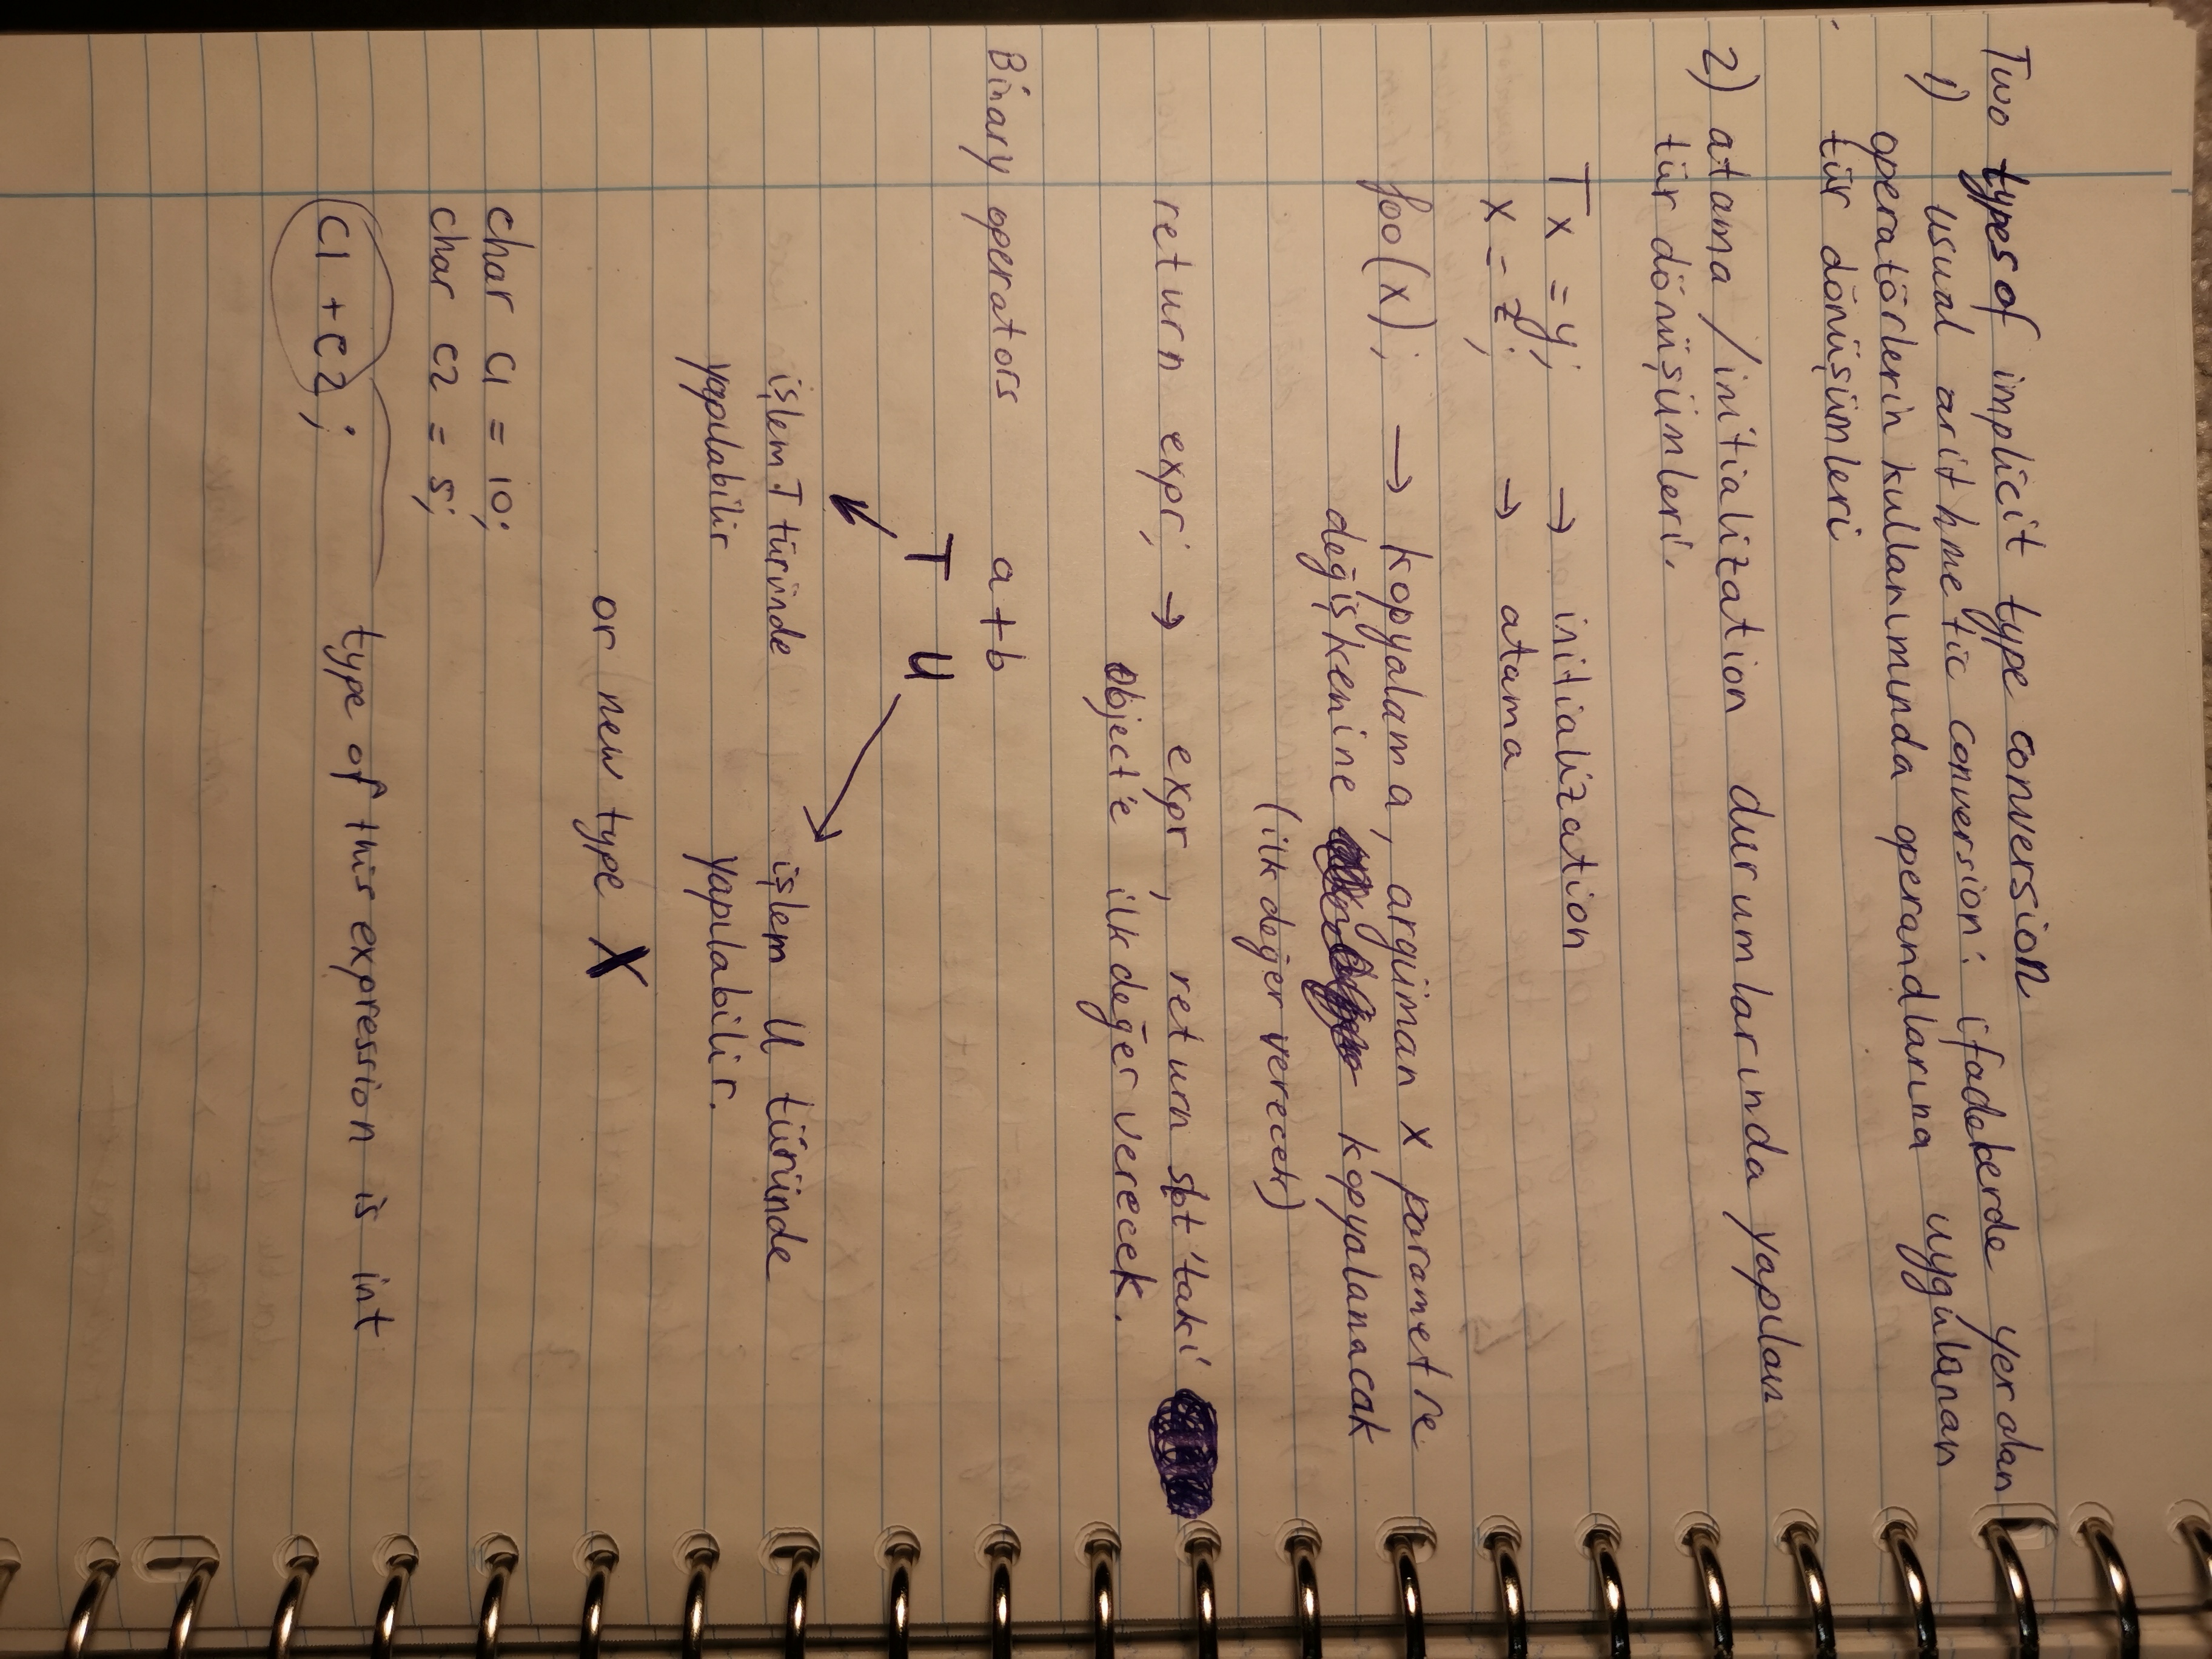 Two types of implicit type conversion
1) usual arithmetic conversion: ifadelerde yer alan
operatörlerin kullanımında operandlarına uygulanan
tür dönüşümleri
2) atama / initialization durumlarında yapılan
tür dönüşümleri.
T x = y; → initialization
x = z; → atama
foo(x); → kopyalama, argüman x parametre
değişkenine kopyalanacak
(ilk değer verecek)
return expr; → expr, return slot'taki
object'e ilk değer verecek.
Binary operators a+b
T U
işlem T türünde işlem U türünde
yapılabilir yapılabilir.
or new type X
char c1 = 10;
char c2 = 5;
c1 + c2; type of this expression is int